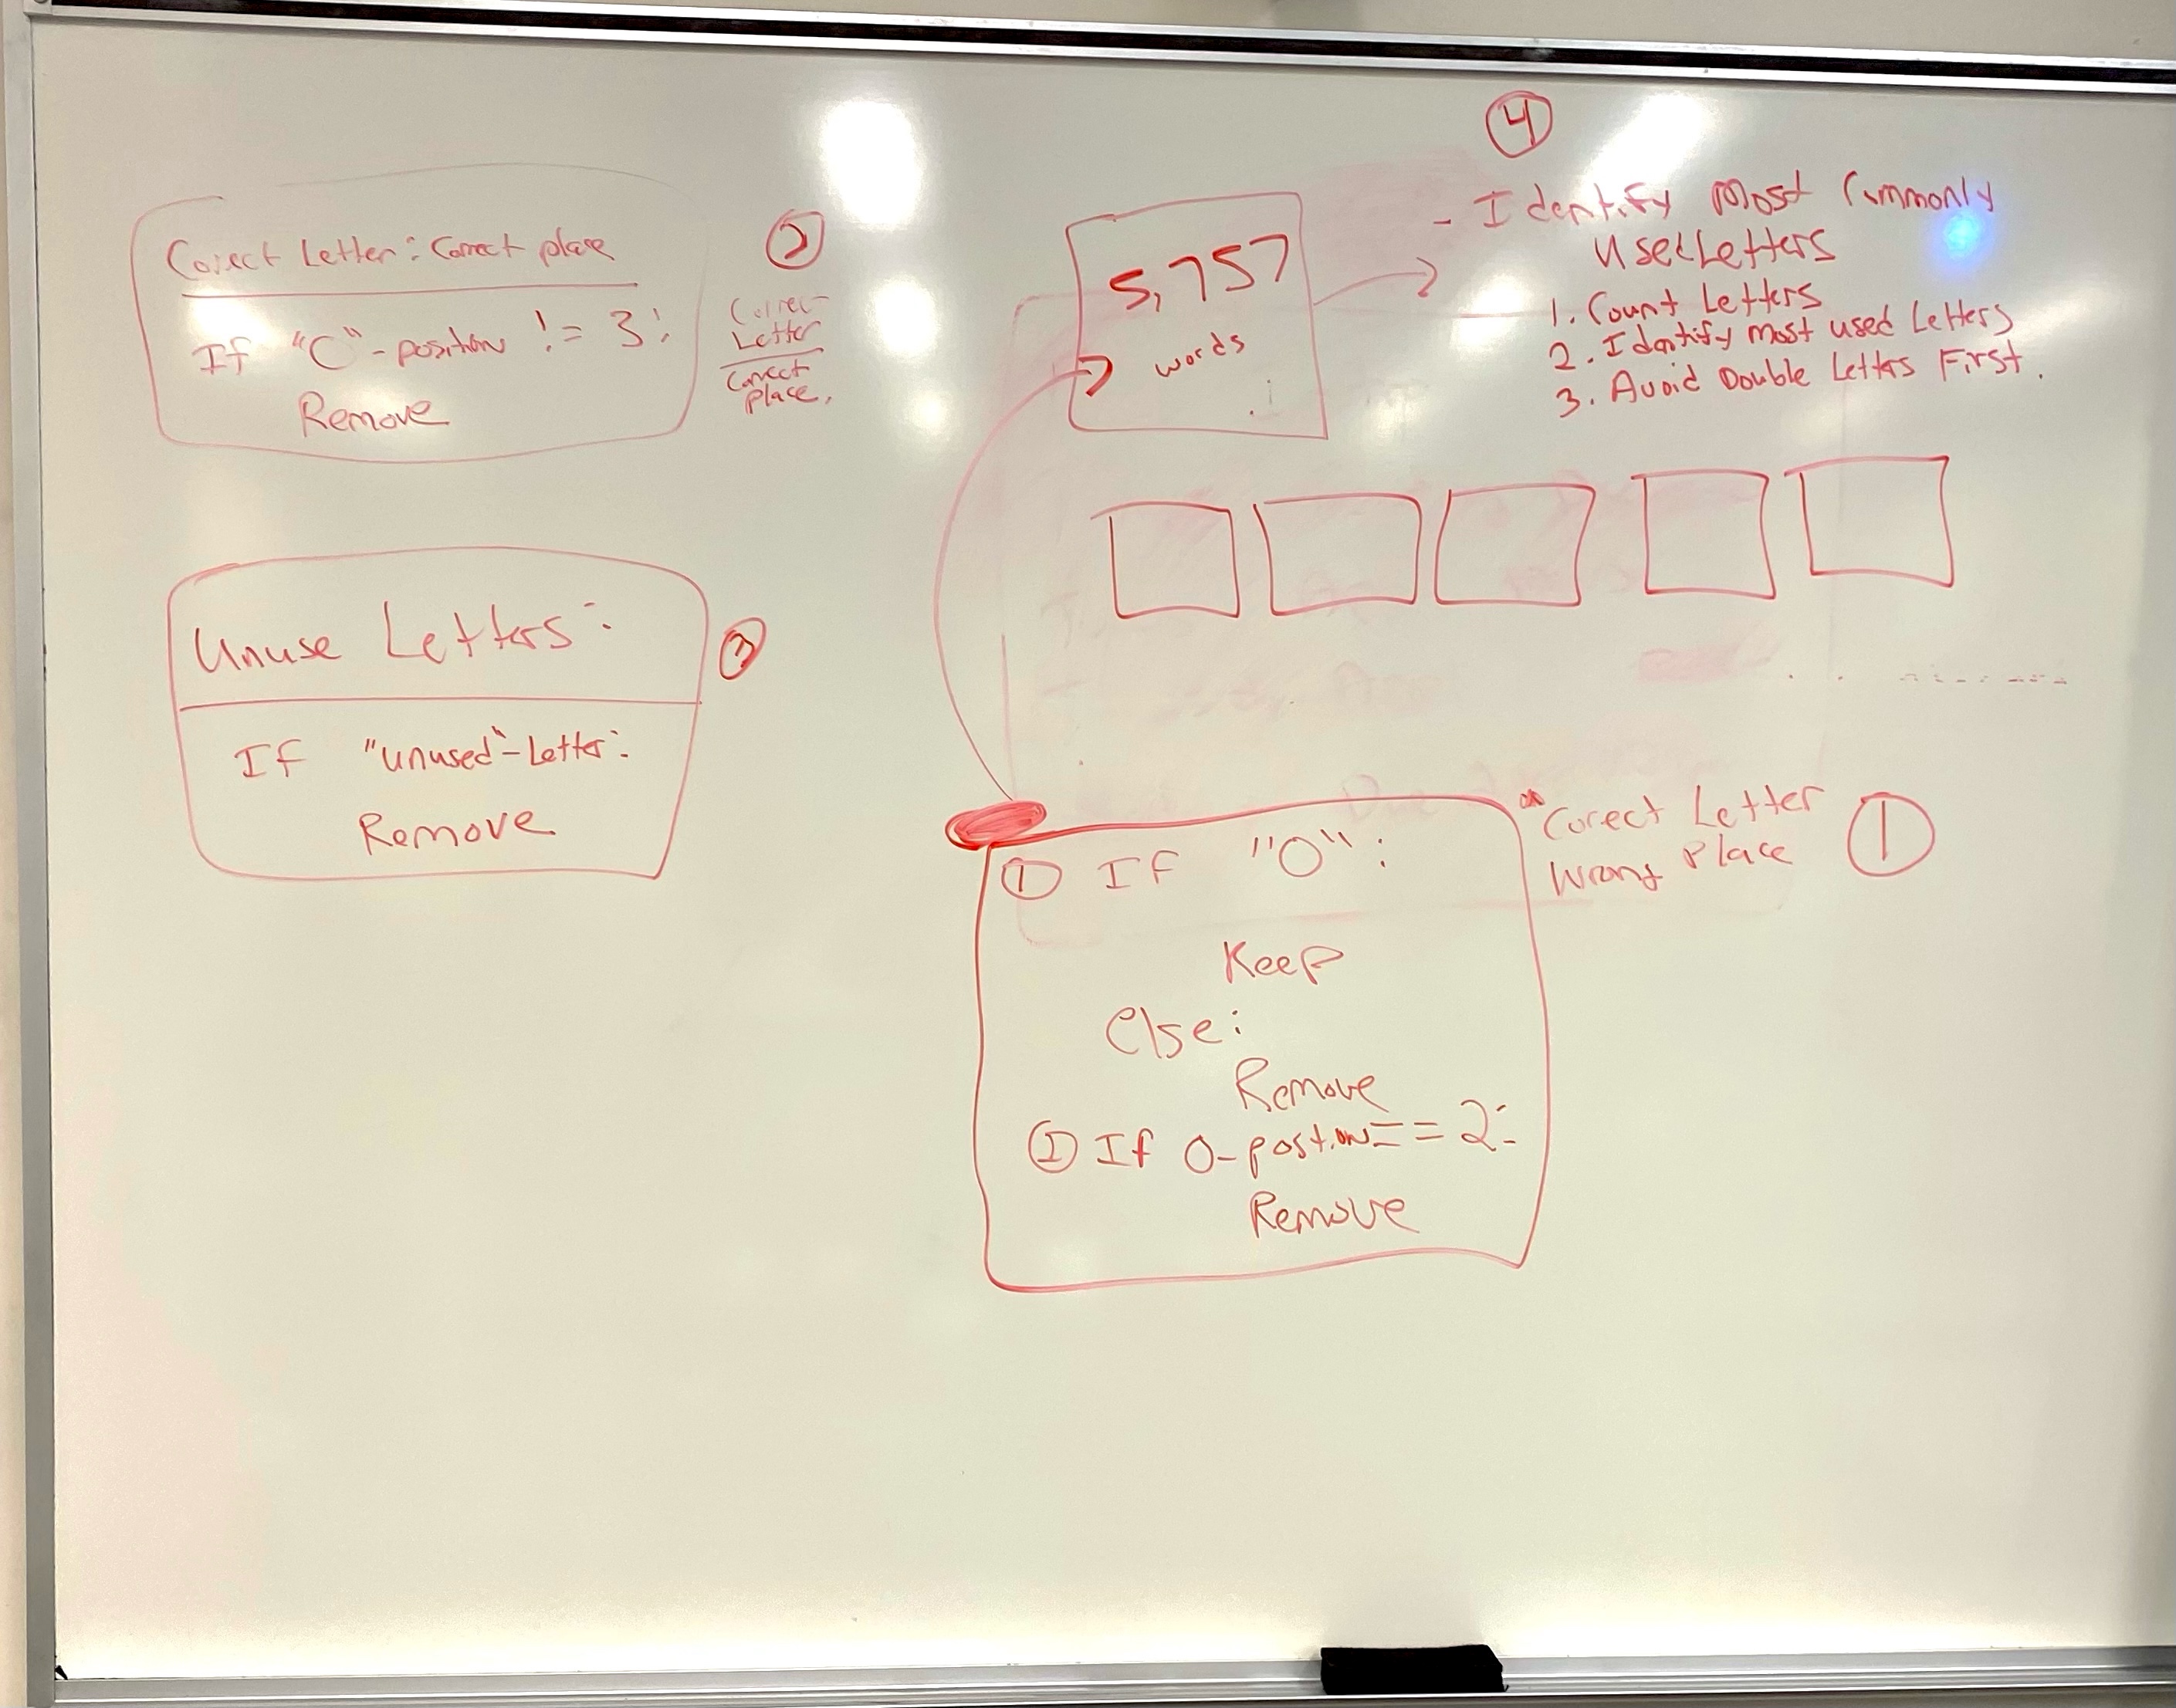 Corect Letter: Correct place
If "C"-position != 3:
Remove
2
Correc
Letter
Correct
place.
Unuse Letters:
3
If "unused"-Letter:
Remove
5,757
words
4
- Identify Most Commonly
Used Letters
1. Count Letters
2. Identify most used Letters
3. Avoid Double Letters First.
1 If "O":
Keep
Else:
Remove
If O-position == 2:
Remove
Corect Letter
Wrong Place
1